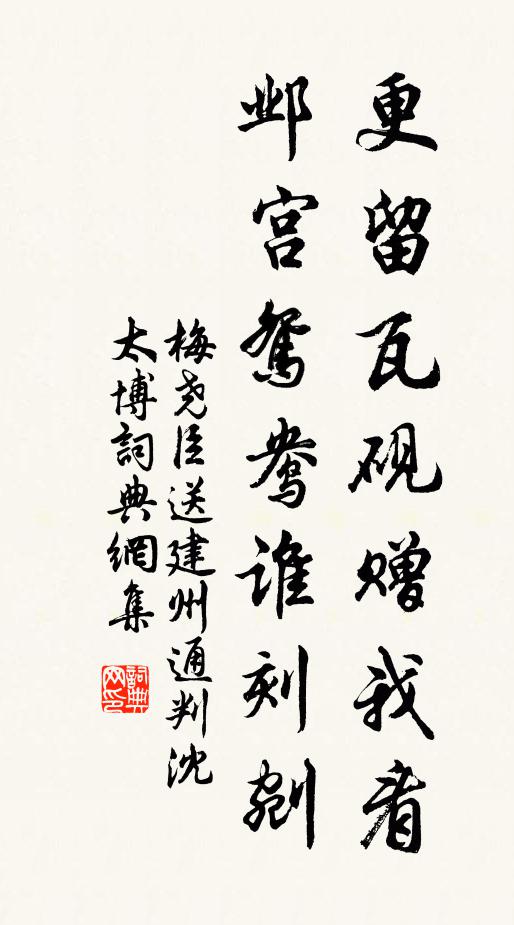 更留瓦砚赠我看
邺宫鸳鸯谁刻剜
梅尧臣送建州通判沈
太博詞典網集
詞典网印